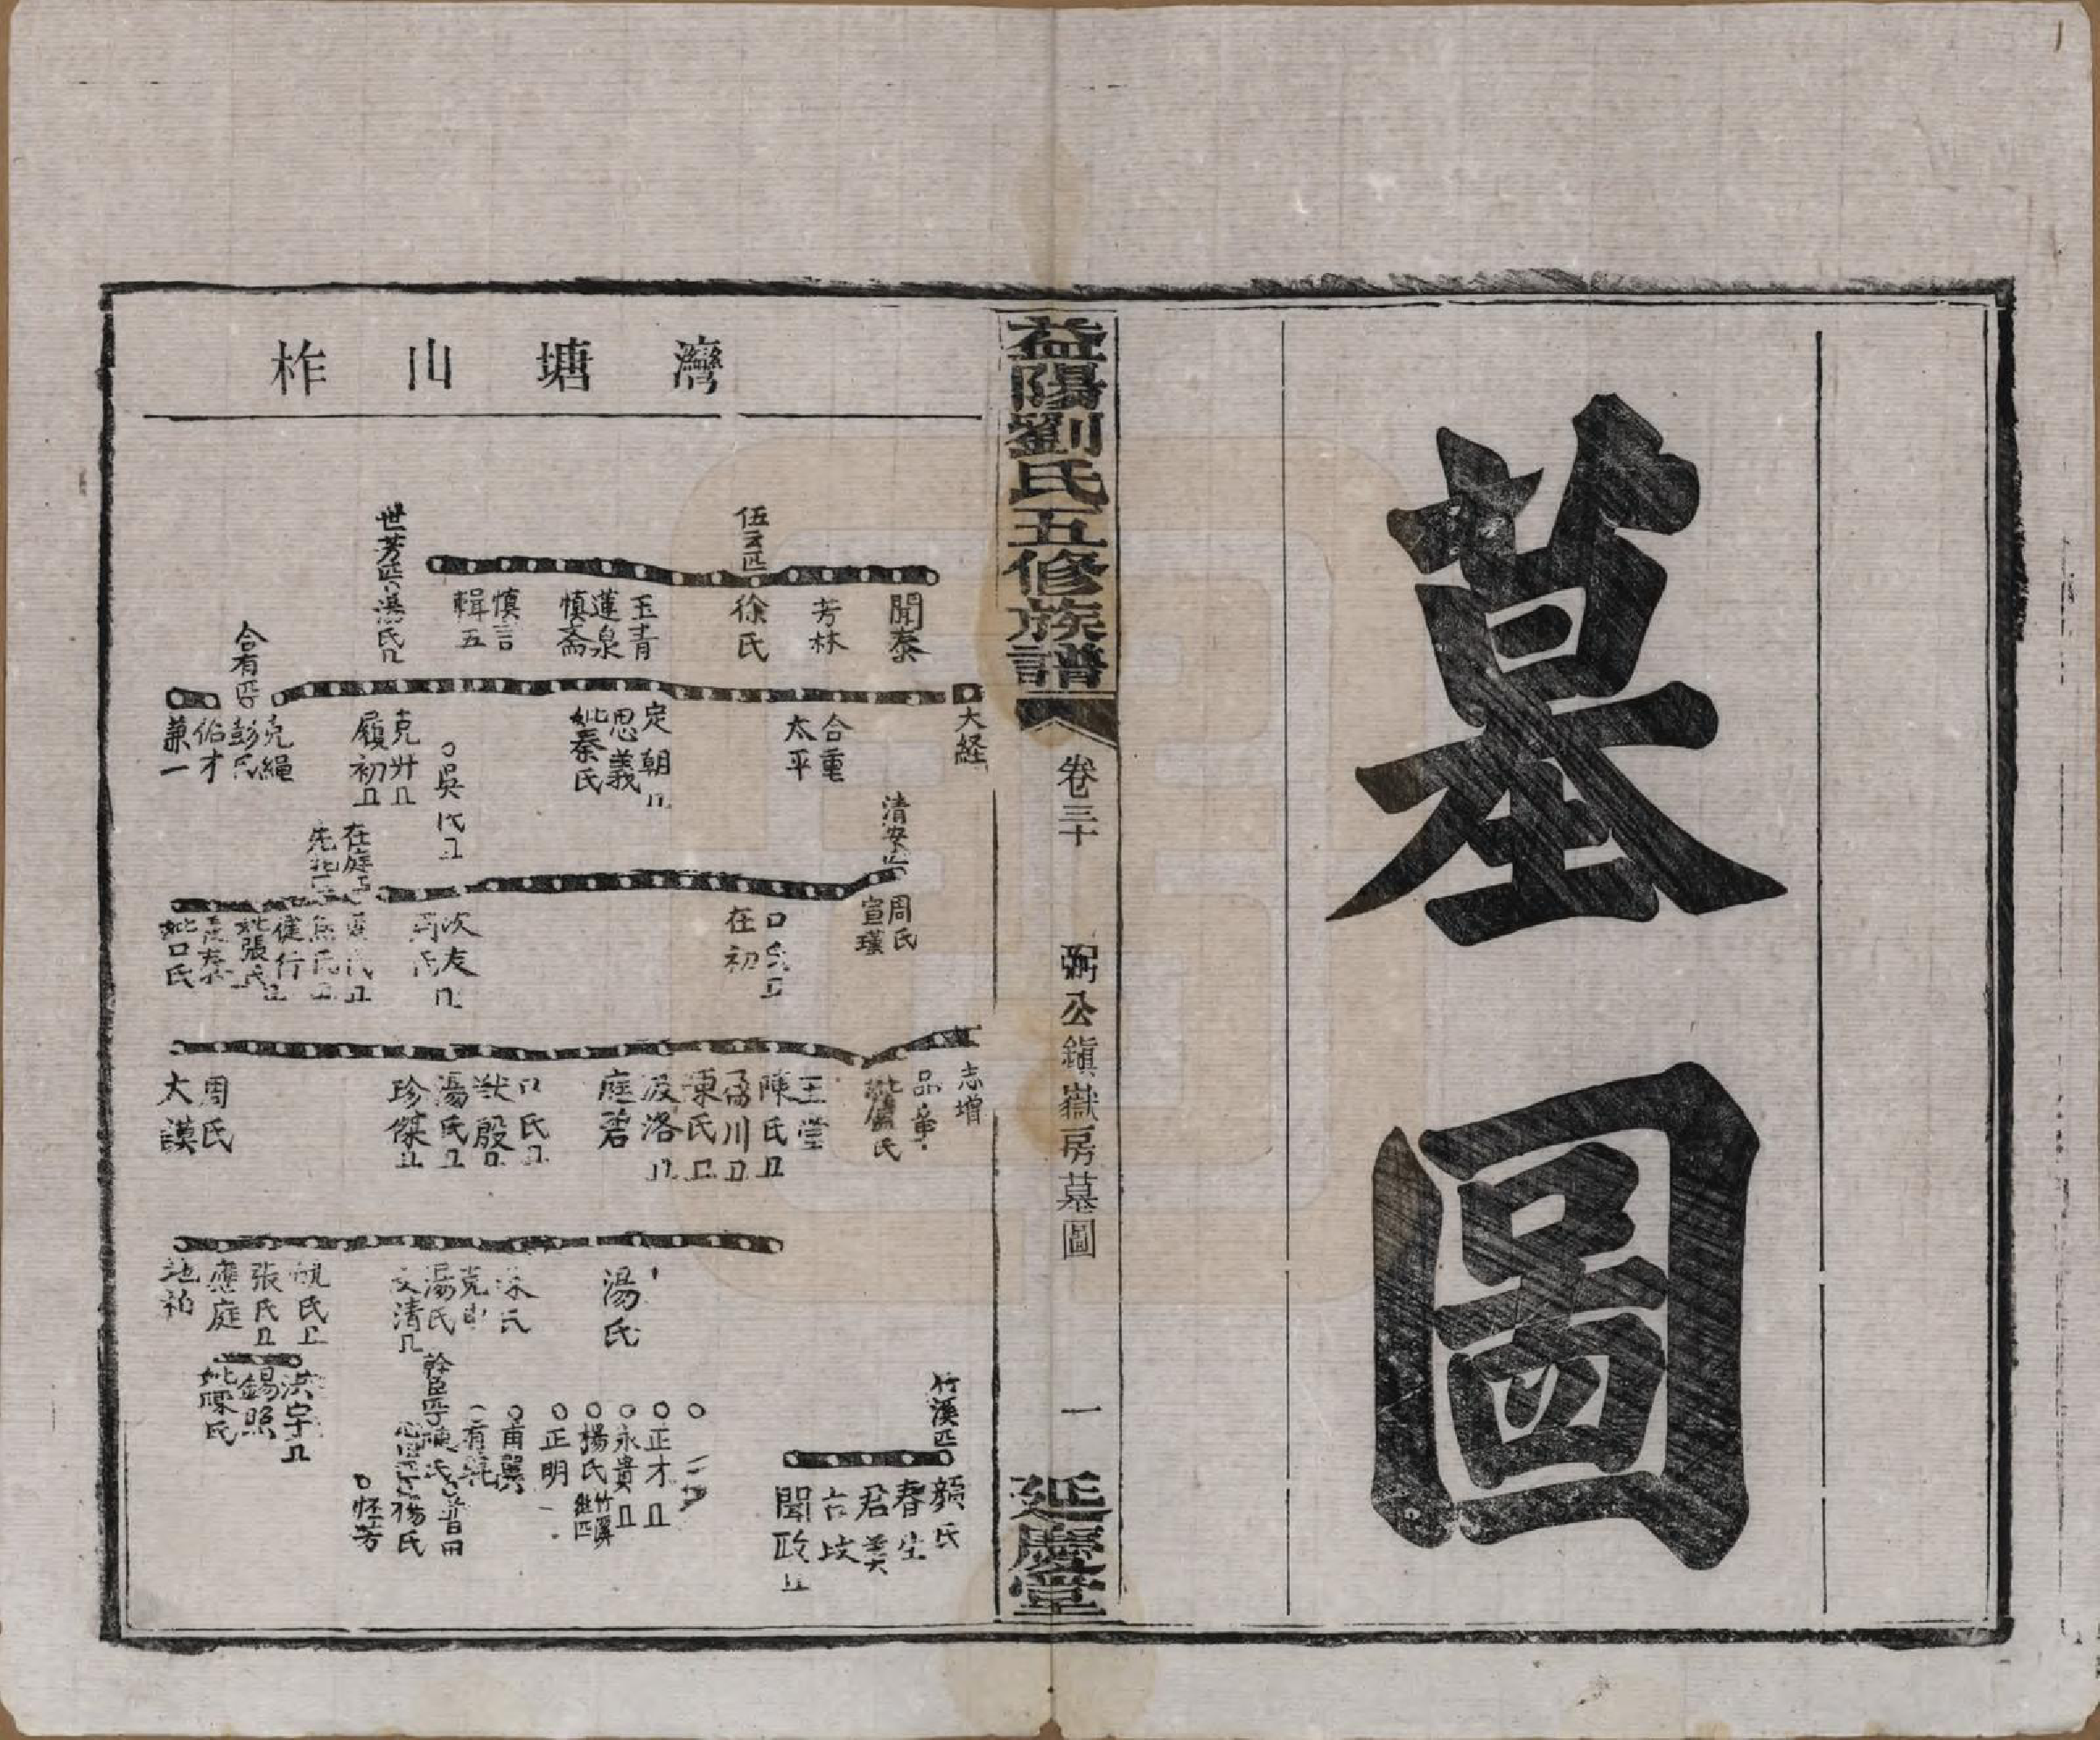 墓圖
益陽劉氏五修族譜
卷三十
弼公鎮嶽房墓圖
一
延慶堂
灣塘山柞
伍云匹
世芳匹
湯氏
聞泰
芳林
徐氏
玉青
蓮泉
慎齋
慎言
輯五
合有匹
大経
合重
太平
定朝
思義
妣秦氏
克廾
履初
克繩
彭氏
佑才
兼一
吳氏
清安
在庭
周氏
宣瑾
口氏
在初
次友
健行
妣張氏
妣口氏
志增
品章
妣盧氏
玉堂
陳氏
禹川
陳氏
汲洛
庭碧
口氏
猷殷
湯氏
珍傑
周氏
大謨
湯氏
朱氏
克中
湯氏
文清
張氏
應庭
地柏
洪宇
錫照
妣陳氏
幹臣
竹溪匹
顏氏
春生
君美
古坟
聞政
正才
永貴
楊氏
竹溪
正明
甫翼
陳氏
普田
楊氏
怪芳